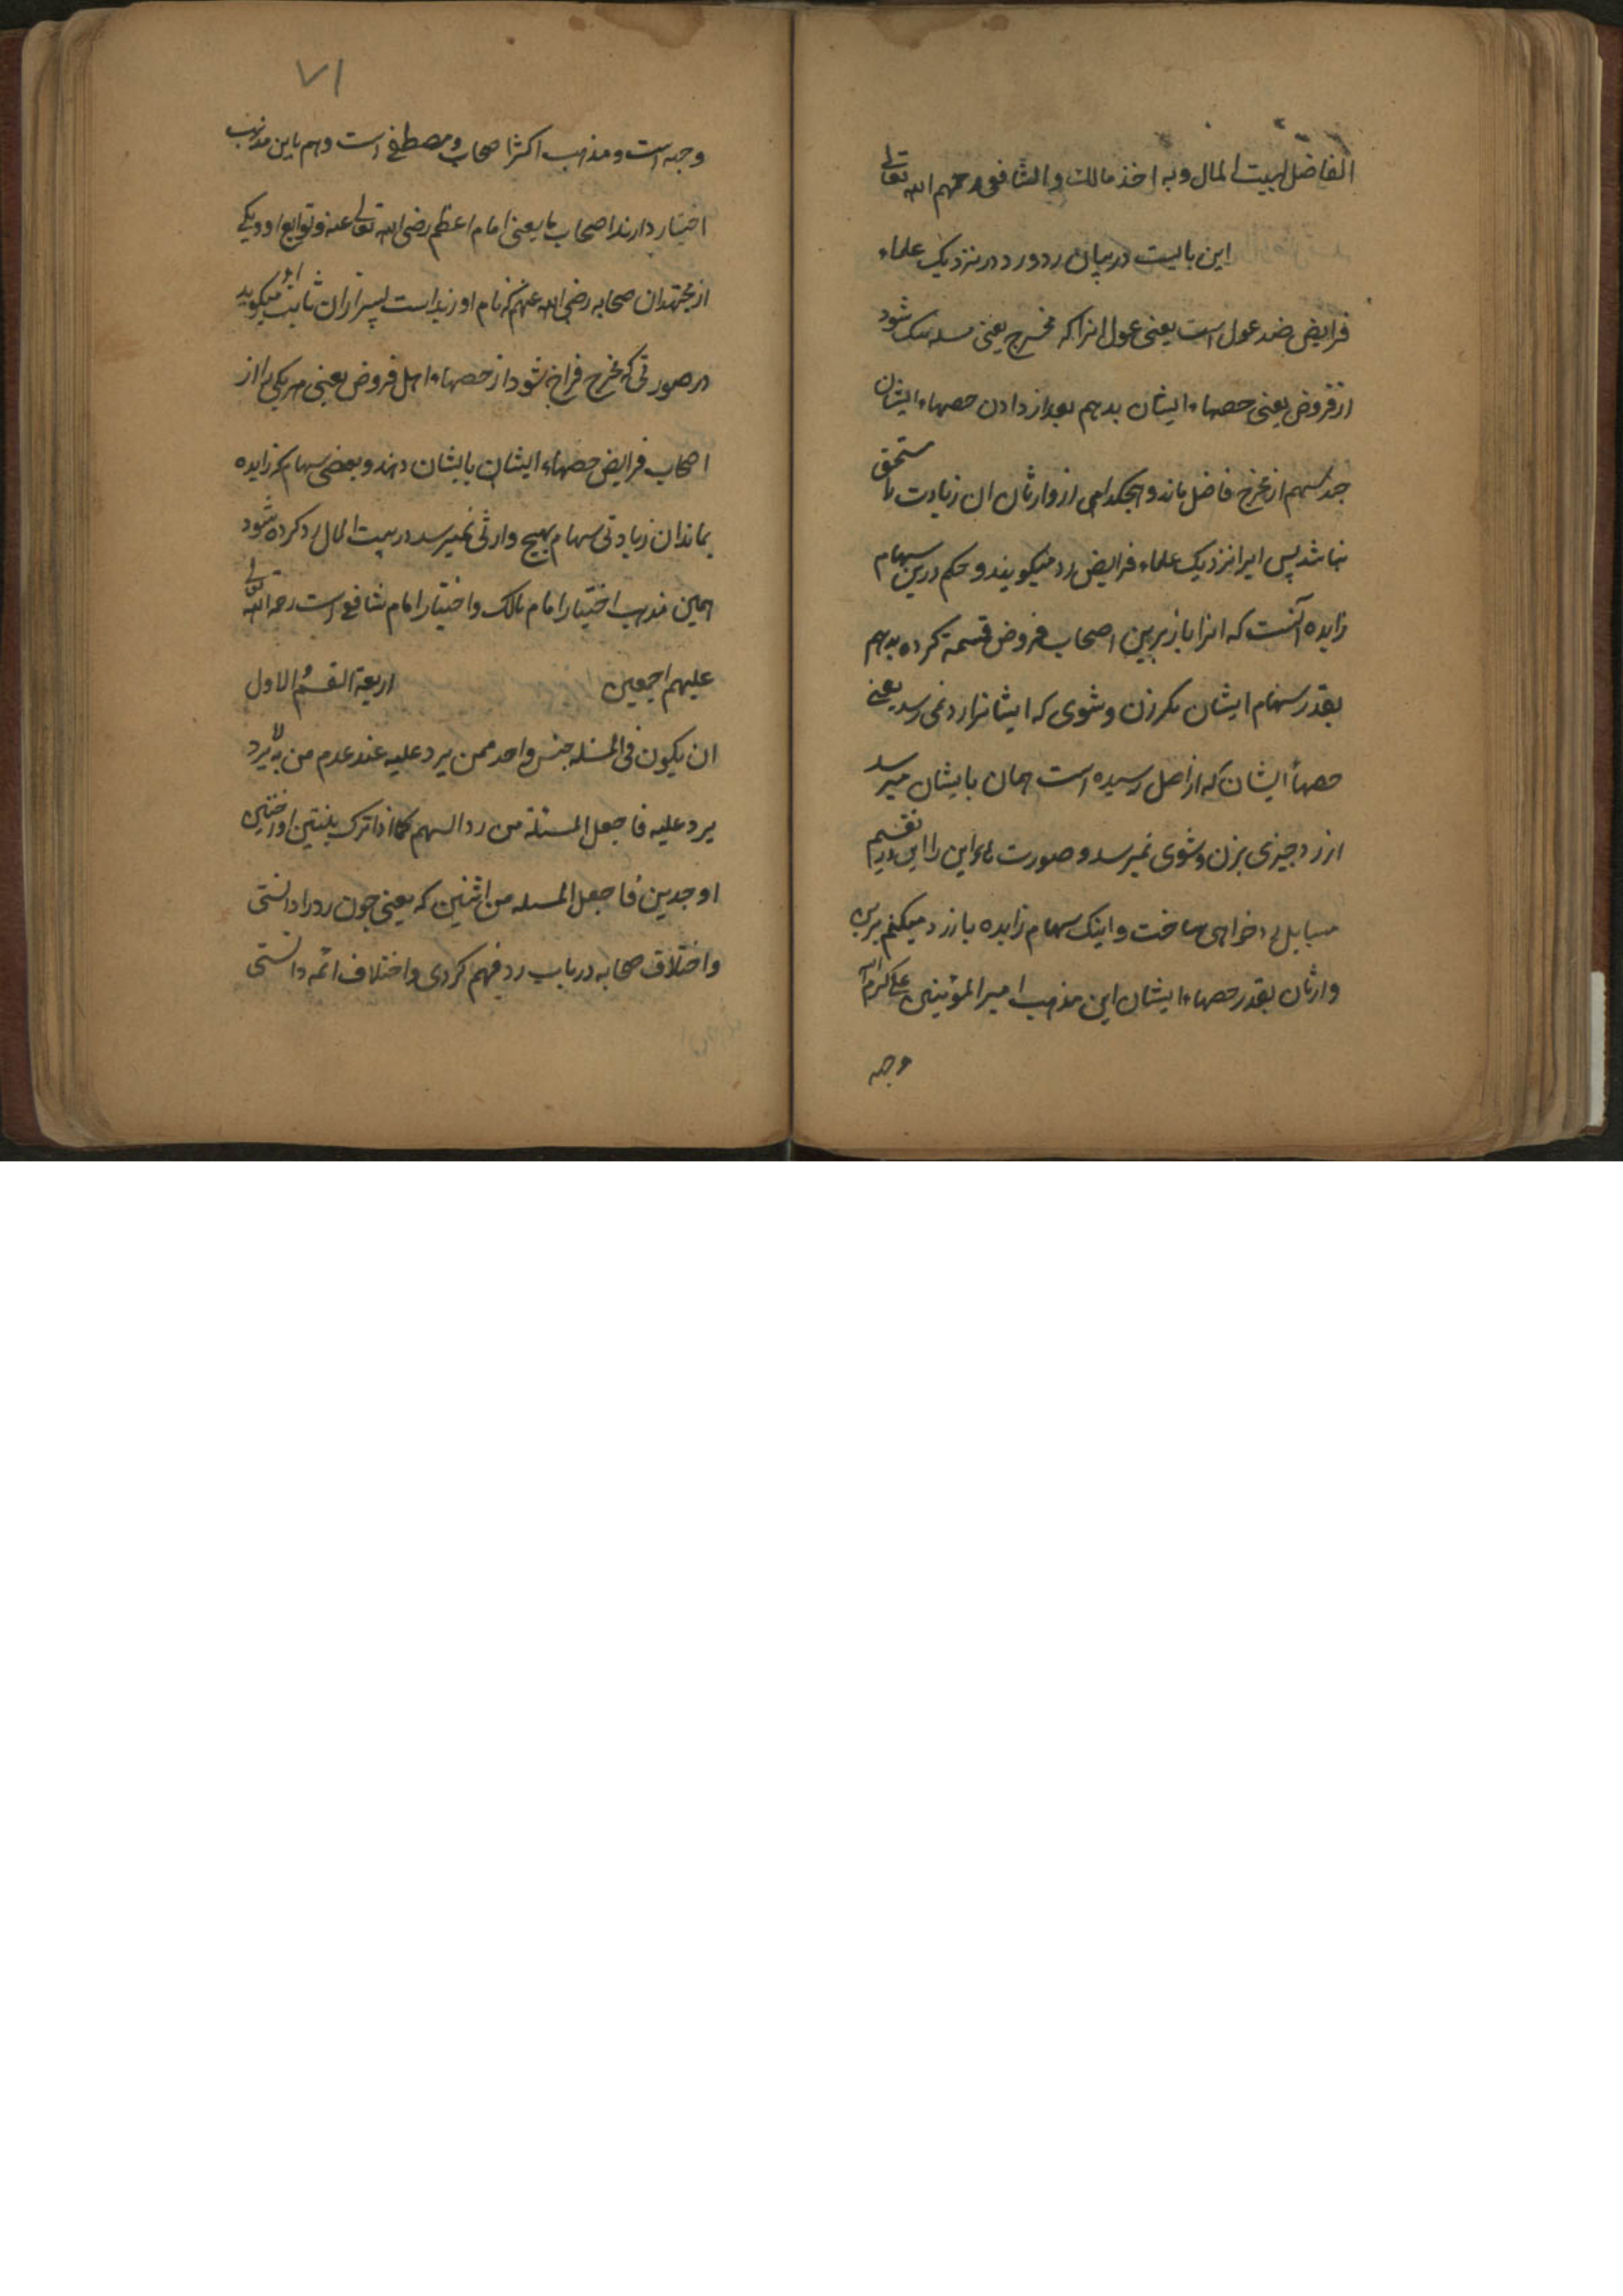 الفاضل لبیت المال وبه اخذ مالک والشافعی رحمهم الله تعالی
این بابیست در بیان رد ورد در نزدیک علماء
فرایض ضد عول است یعنی عول انرا که مخرج یعنی مسله تنک شود
از فروض یعنی حصهاء ایشان بدهم بعد از دادن حصهاء ایشان
جند سهم از مخرج فاضل ماند و هیچکدامی از وارثان ان زیادت را مستحق
نباشد پس ایرا نزدیک علماء فرایض رد میکویند و حکم درین سهام
زایده آنست که انرا باز برین اصحاب فروض قسمة کرده بدهم
بقدر سهام ایشان مکر زن و شوی که ایشانرا رد نمی رسد یعنی
حصهأ ایشان که از اصل رسیده است همان بایشان میرسد
از رد جیزی بزن و شوی نمیرسد و صورت این را این در تقسیم
مسایل خواهی شناخت و اینک سهام زایده باز رد میکنم برین
وارثان بقدر حصهاء ایشان این مذهب امیر المؤمنین علی کرم الله
وجهه
۷۱
وجهه است و مذهب اکثر اصحاب مصطفی است و هم باین مذهب
اختیار دارند اصحاب ما یعنی امام اعظم رضی الله تعالی عنه و توابع او و یکی
از مجتهدان صحابه رضی الله عنهم که نام او زید است پسر ثابت میکوید
در صورتی که مخرج فراخ شود از حصهاء اهل فروض یعنی هر یکی را از
اصحاب فرایض حصهاء ایشان بایشان دهند و بعضی سهام که زایده
بماند ان زیادتی سهام بهیچ وارثی نمیرسد در بیت المال رد کرده شود
همین مذهب اختیار امام مالک و اختیار امام شافعی است رحمة الله تعالی
علیهم اجمعین اربعة القسم الاول
ان یکون فی المسئله جنس واحد ممن یرد علیه عند عدم من لا یرد
یرد علیه فاجعل المسئلة من رد السهم کما اذا ترک بنتین او اختین
او جدین فاجعل المسله من اثنین که یعنی جون رد را دانستی
و اختلاف صحابه در باب رد فهم کردی و اختلاف ائمه دانستی